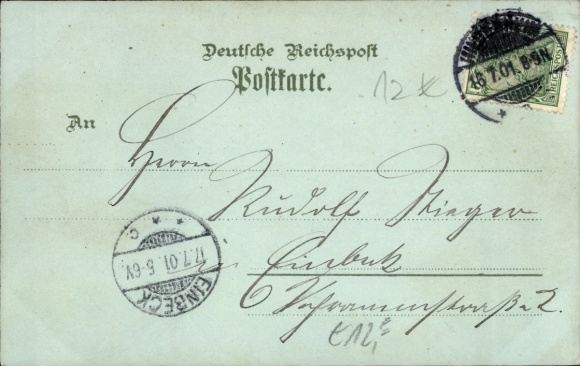 Deutsche Reichspost
Postkarte.
12 x
16.7.01. 8-9N.
REICHSPOST
An
Herrn
Rudolf Stieger
Einbeck
Schrammenstraße 2.
EINBECK
17.7.01. 5-6V.
c
€12,